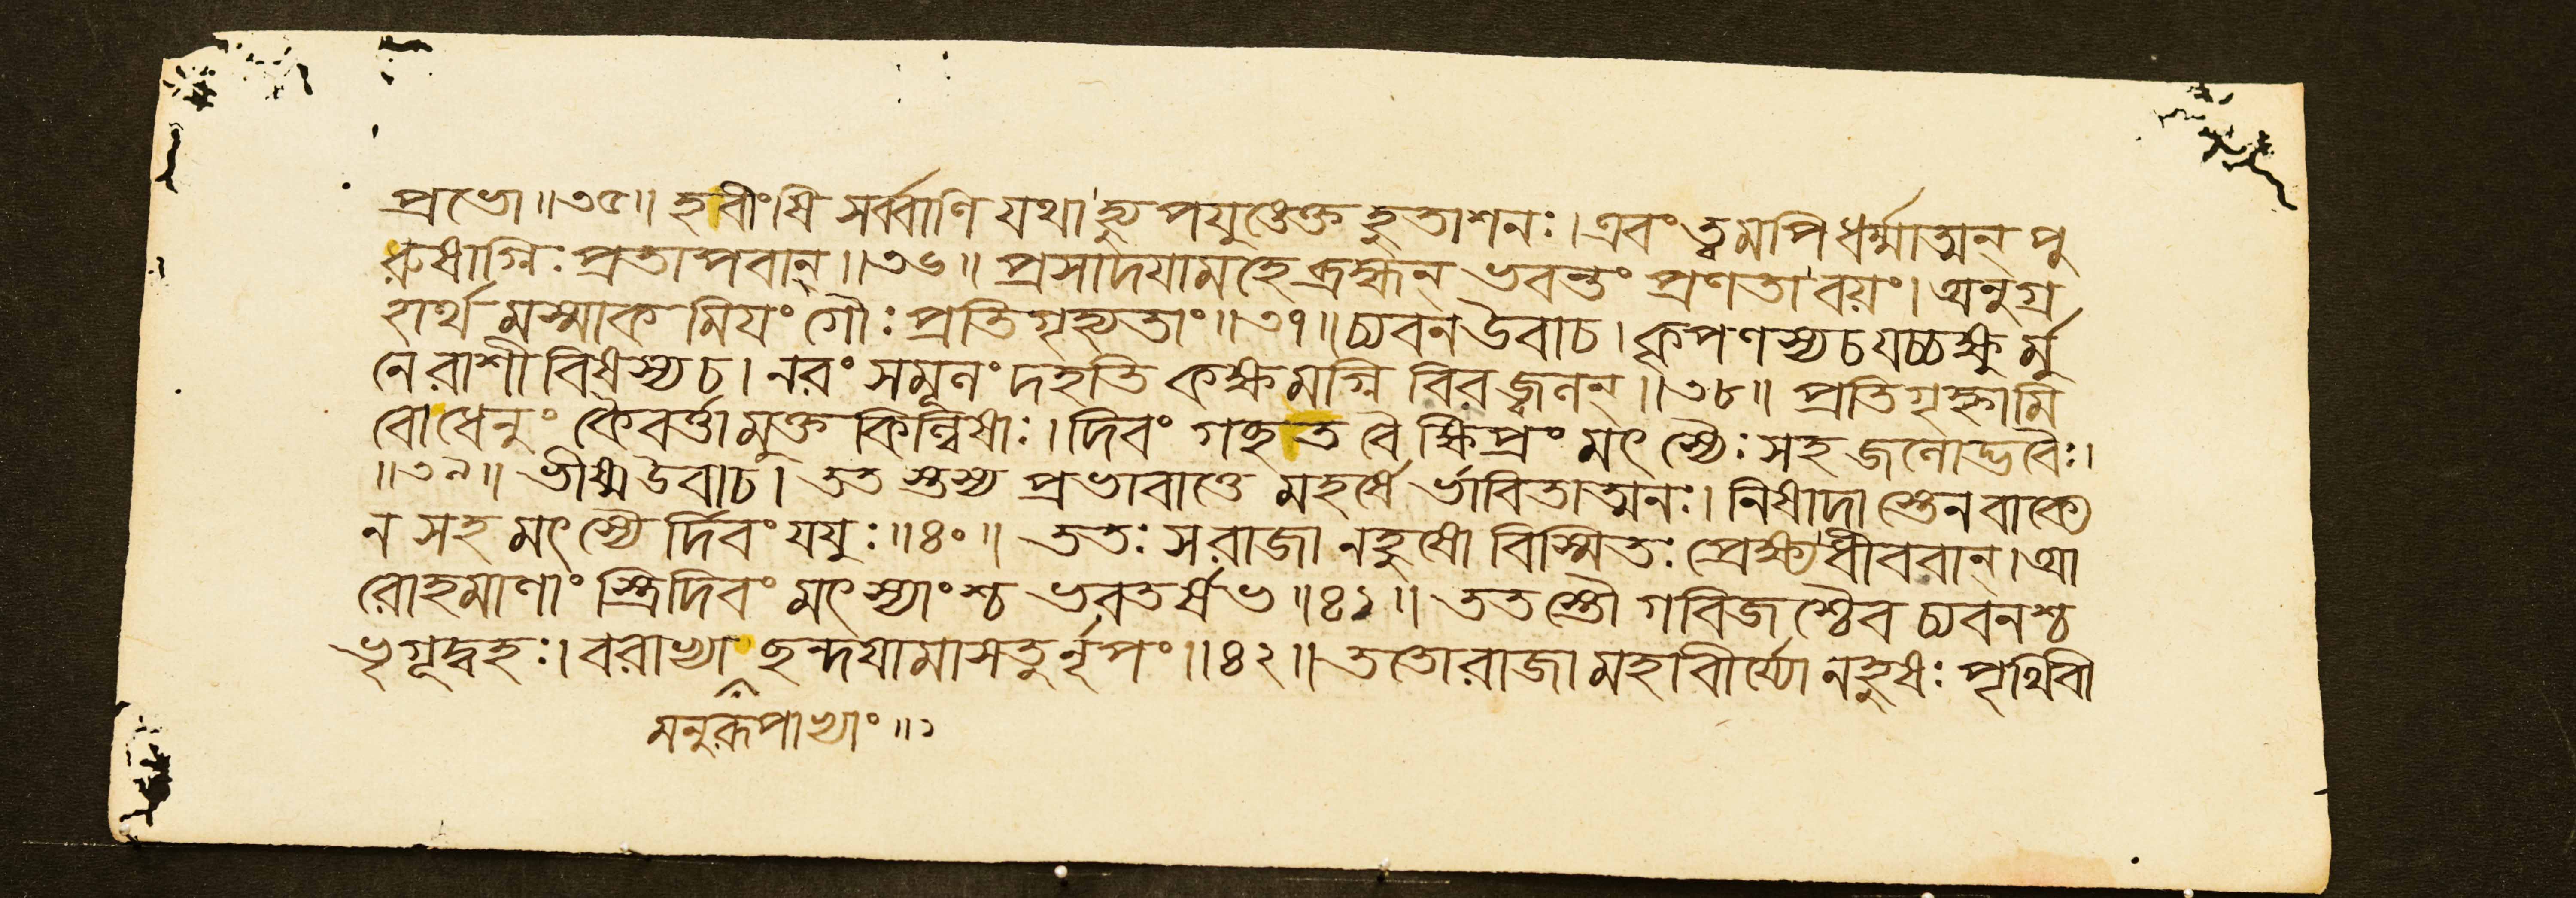 প্রভো॥৩৫॥ হবীংষি সর্ব্বাণি যথা হ্যুপযুঙেক্ত হুতাশনঃ।এবং ত্বমপি ধর্ম্মাত্মন্ পু
রুষাগ্নিঃ প্রতাপবান্॥৩৬॥ প্রসাদয়ামহে ব্রহ্মন্ ভবন্তং প্রণতা বয়ং। অনুগ্র
হার্থমস্মাকমিয়ং গৌঃ প্রতিগৃহ্যতাং॥৩৭॥ চ্যবন উবাচ। কৃপণস্য চ যচ্চক্ষুর্মু
নেরাশীবিষস্য চ। নরং সমূলং দহতি কক্ষমগ্নিরিব জ্বলন্॥৩৮॥ প্রতিগৃহ্নামি
বো ধেনুং কৈবর্ত্তা মুক্তকিল্বিষাঃ। দিবং গচ্ছত বৈ ক্ষিপ্রং মৎস্যৈঃ সহ জলোদ্ভবৈঃ।
॥৩৯॥ ভীষ্ম উবাচ। ততস্তস্য প্রভাবাত্তে মহর্ষের্ভাবিতাত্মনঃ। নিষাদাস্তেন বাক্যে
ন সহ মৎস্যৈর্দিবং যযুঃ॥৪০॥ ততঃ স রাজা নহুষো বিস্মিতঃ প্রেক্ষ্য ধীবরান্। আ
রোহমাণাং স্ত্রিদিবং মৎস্যাংশ্চ ভরতর্ষভ॥৪১॥ ততস্তৌ গবিজশ্চৈব চ্যবনশ্চ
ভৃগূদ্বহঃ। বরাভ্যা ছন্দয়ামাসতুর্নৃপং॥৪২॥ ততো রাজা মহাবীর্য্যো নহুষঃ পৃথিবী
মনুরূপাভ্যাং॥১